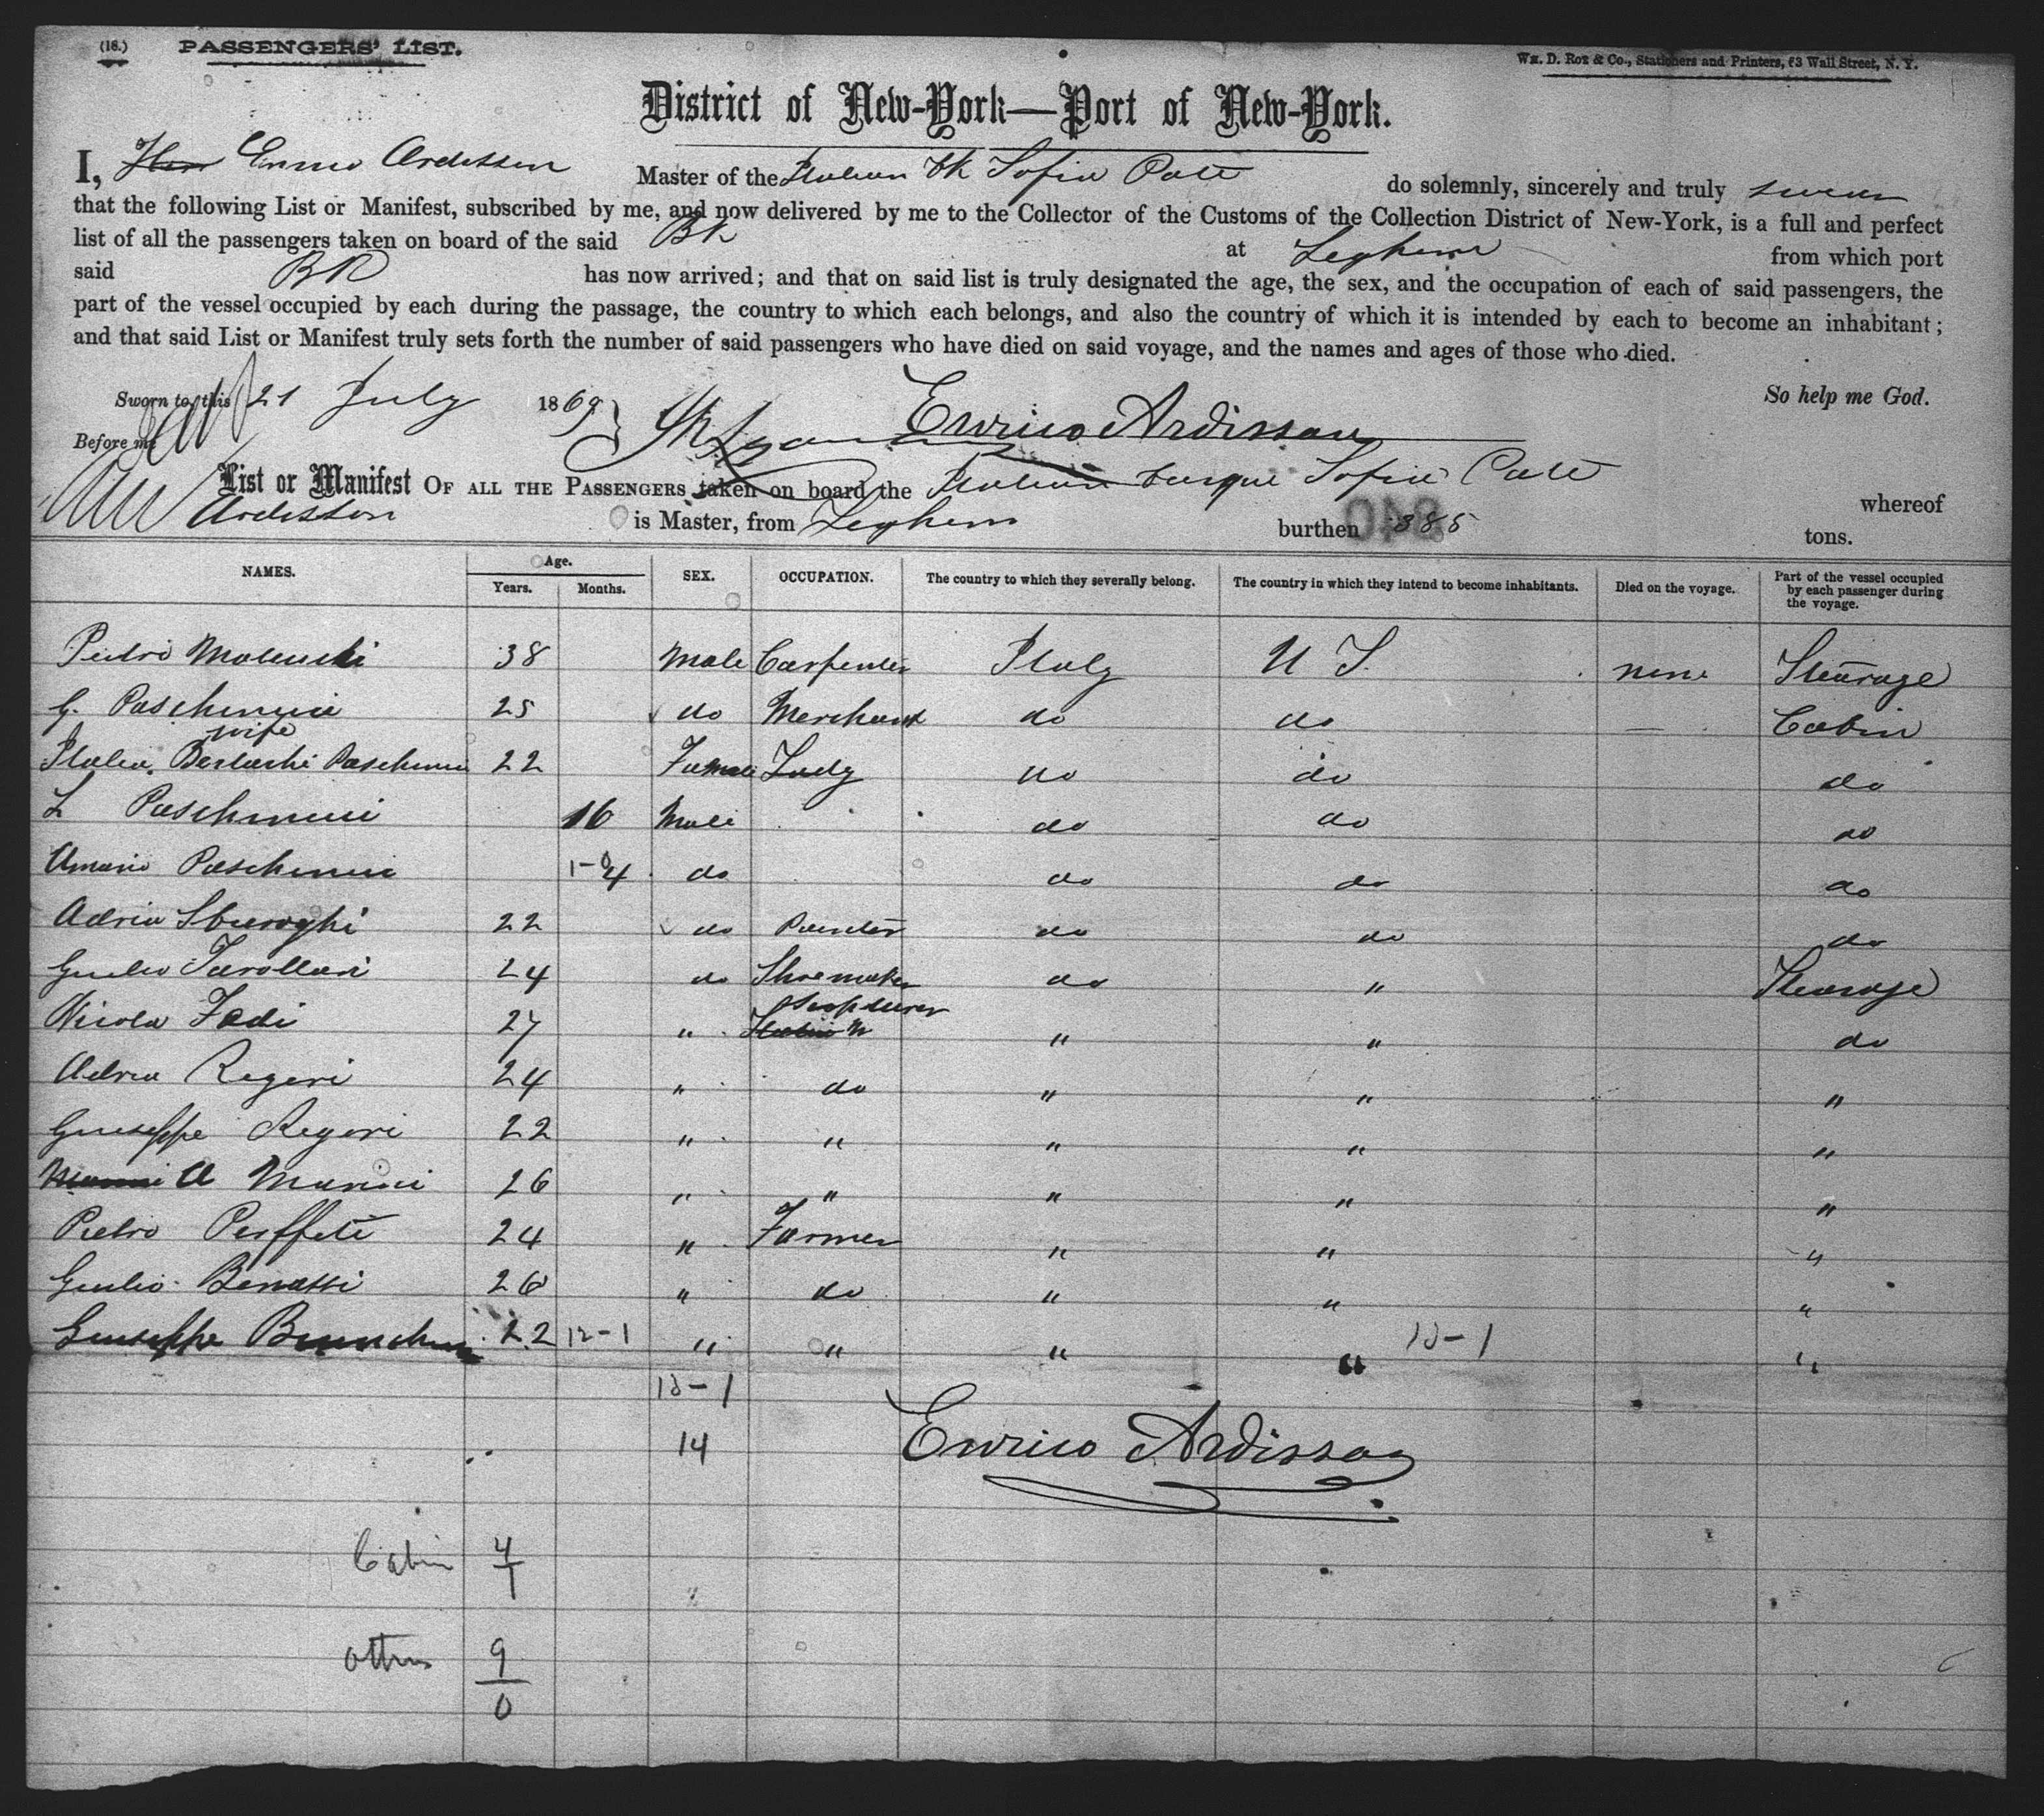 (18.) PASSENGERS' LIST.
Wm. D. Roe & Co., Stationers and Printers, 63 Wall Street, N. Y.
District of New-York—Port of New-York.
I, Enrico Ardisson Master of the Italian Bk Sofia Catè do solemnly, sincerely and truly swear
that the following List or Manifest, subscribed by me, and now delivered by me to the Collector of the Customs of the Collection District of New-York, is a full and perfect
list of all the passengers taken on board of the said Bk at Leghorn from which port
said BK has now arrived; and that on said list is truly designated the age, the sex, and the occupation of each of said passengers, the
part of the vessel occupied by each during the passage, the country to which each belongs, and also the country of which it is intended by each to become an inhabitant;
and that said List or Manifest truly sets forth the number of said passengers who have died on said voyage, and the names and ages of those who died.
Sworn to, this 21 July 1869 Enrico Ardisson So help me God.
Before me
List or Manifest OF ALL THE PASSENGERS taken on board the Italian barque Sofia Catè whereof
Ardisson is Master, from Leghorn burthen 385 tons.
NAMES. Age. Years. Months. SEX. OCCUPATION. The country to which they severally belong. The country in which they intend to become inhabitants. Died on the voyage. Part of the vessel occupied by each passenger during the voyage.
Pietro 38 Male Carpenter Italy U S. none Stearage
G. Paschinini 25 do Merchant do do — Cabin
wife
Italia Paschinini 22 Female Lady do do do
L Paschinini 16 Male do do do
Paschinini 1-4 do do do do
Adria 22 do Painter do do do
Giulio 24 do Shoemaker do " Stearage
Nicola Fedi 27 " Sculpturer " " do
Adria Regeri 24 " do " " "
Giuseppe Regori 22 " " " " "
A Marini 26 " " " " "
Pietro Perffeti 24 " Farmer " " "
Giulio Benassi 26 " do " " "
Giuseppe 22 12-1 " " " " 13-1 "
13-1
14 Enrico Ardisson
Cabin 4
1
others 9
0